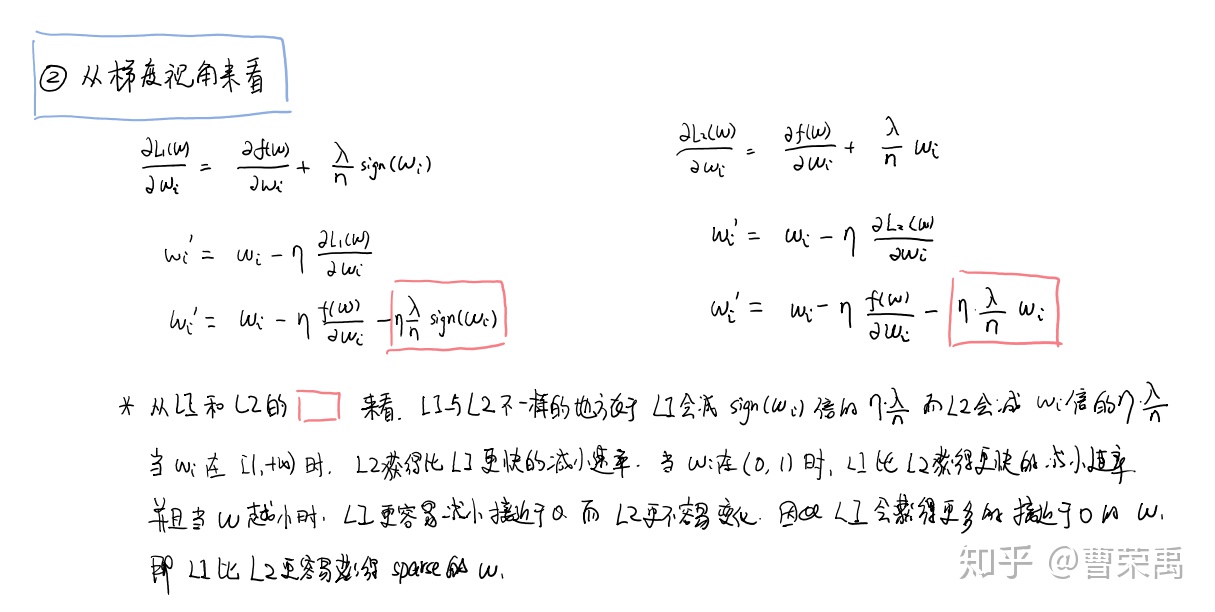 ② 从梯度视角来看
∂L₁(w)/∂wᵢ = ∂f(w)/∂wᵢ + λ/n sign(wᵢ)
wᵢ' = wᵢ - η ∂L₁(w)/∂wᵢ
wᵢ' = wᵢ - η f(w)/∂wᵢ - η λ/n sign(wᵢ)
∂L₂(w)/∂wᵢ = ∂f(w)/∂wᵢ + λ/n wᵢ
wᵢ' = wᵢ - η ∂L₂(w)/∂wᵢ
wᵢ' = wᵢ - η f(w)/∂wᵢ - η·λ/n wᵢ
* 从L1和L2的 来看. L1与L2不一样的地方在于 L1会减 sign(wᵢ) 倍的 η·λ/n 而L2会减 wᵢ倍的 η·λ/n
当 wᵢ 在 [1,+∞) 时, L2获得比L1更快的减小速率. 当 wᵢ在(0,1)时, L1比L2获得更快的减小速率.
并且当 w 越小时, L1更容易减小接近于0 而 L2更不容易变化. 因此 L1会获得更多的接近于0的 w.
即 L1比L2更容易获得 sparse的 w.
知乎 @曹荣禹